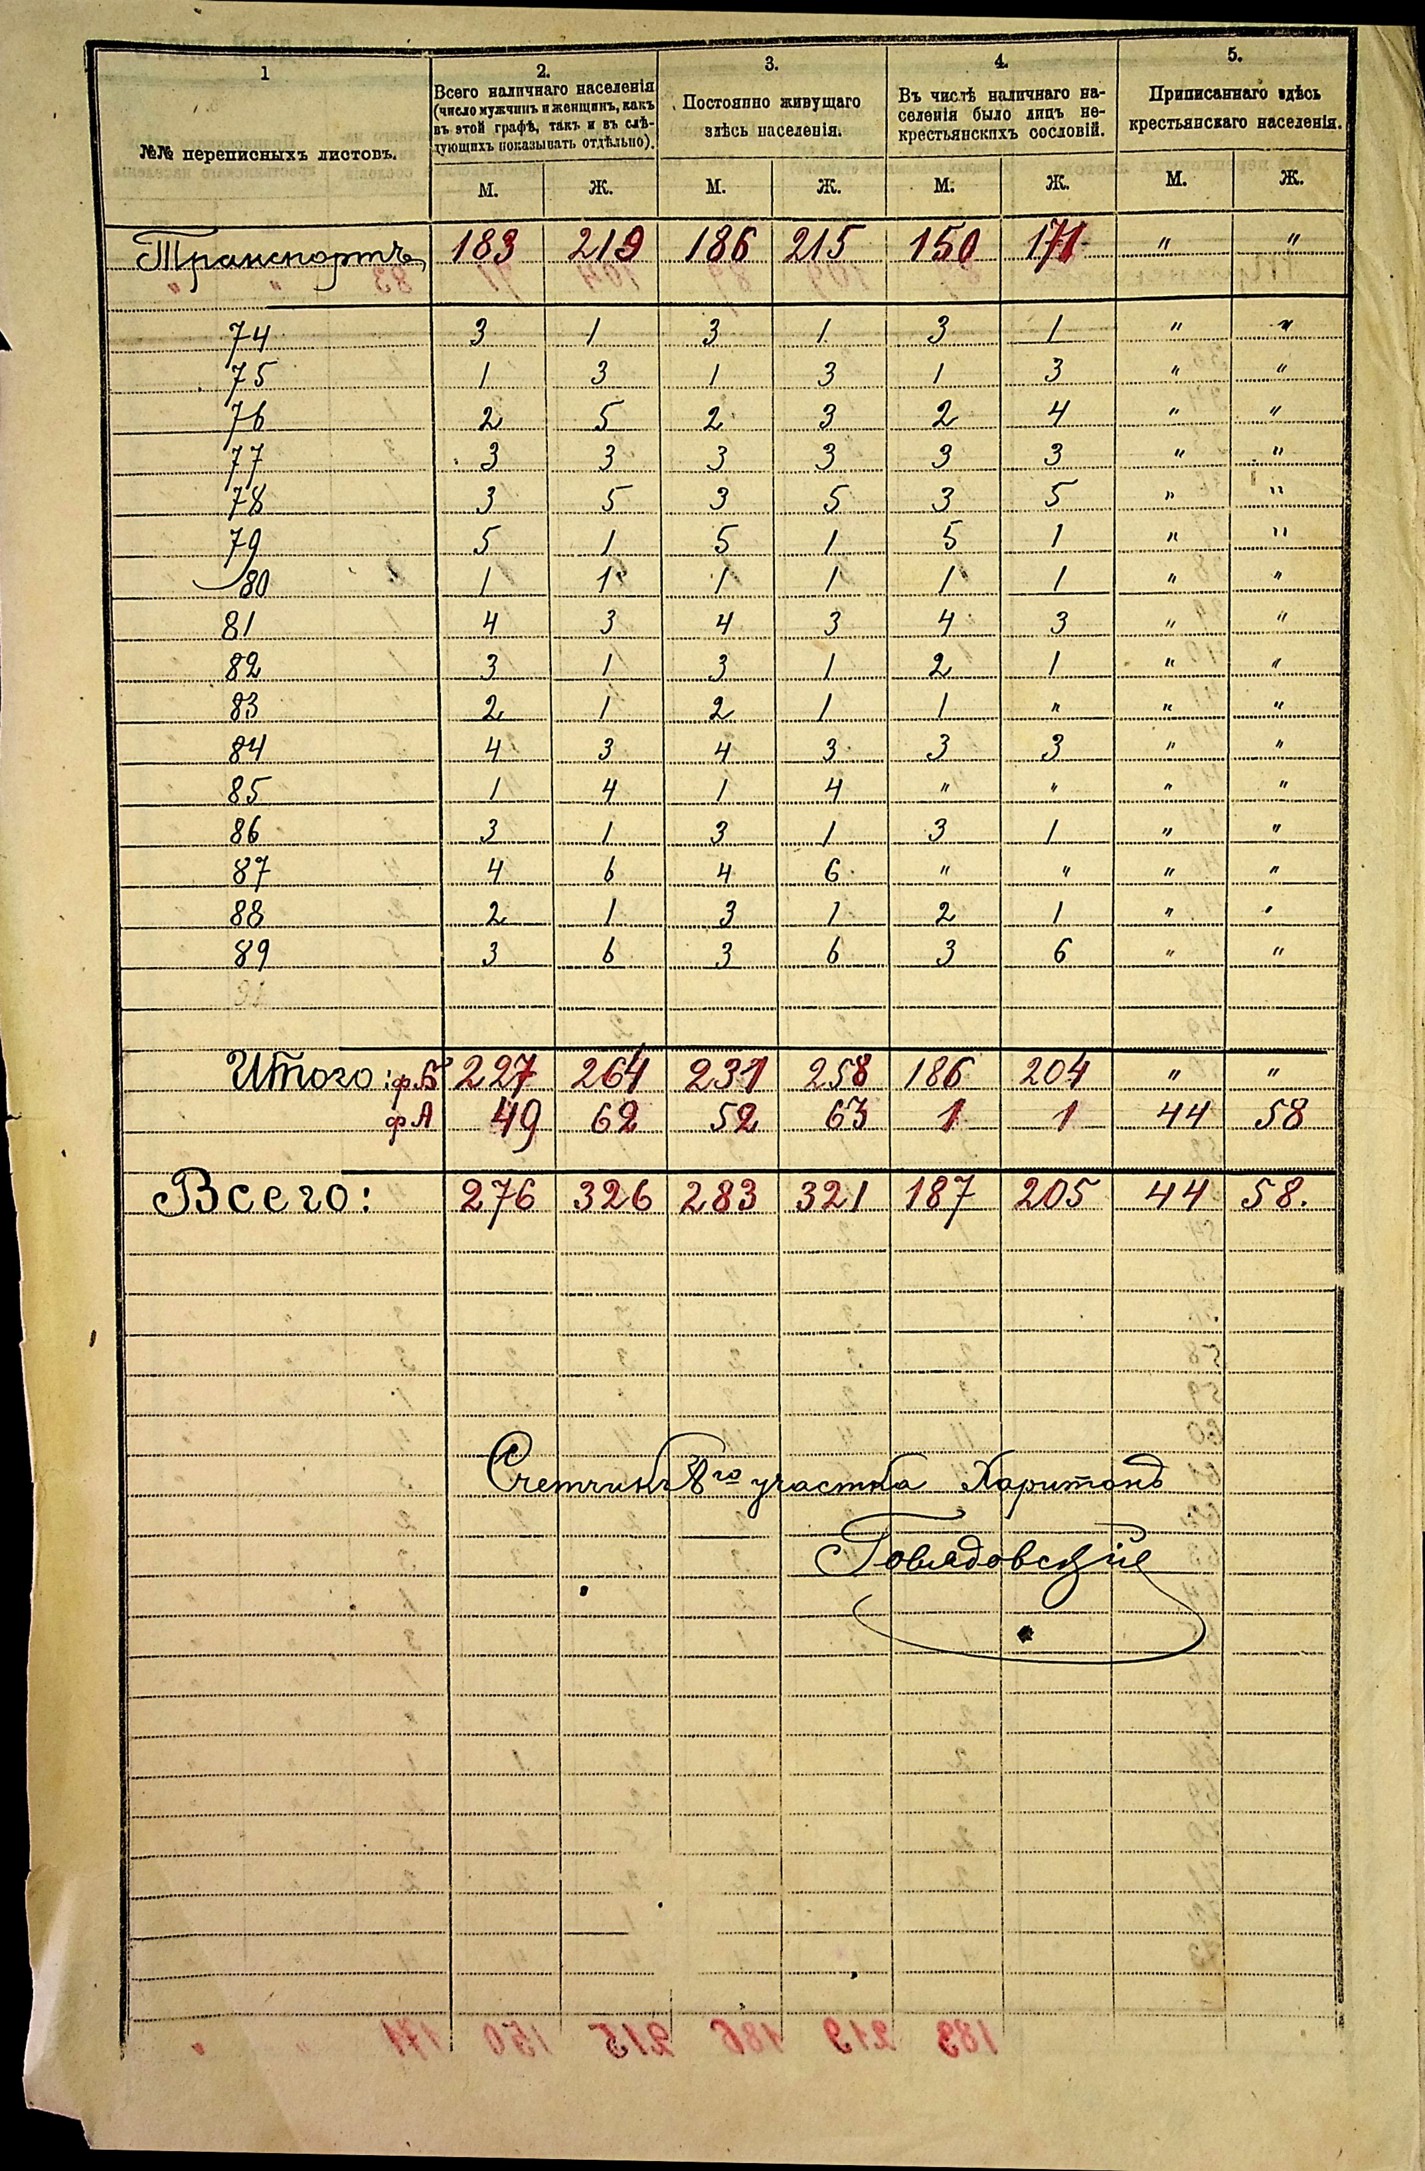 1
2.
3.
4.
5.
№№ переписныхъ листовъ.
Всего наличнаго населенія
(число мужчинъ и женщинъ, какъ
въ этой графѣ, такъ и въ слѣ-
дующихъ показывать отдѣльно).
Постоянно живущаго
здѣсь населенія.
Въ числѣ наличнаго на-
селенія было лицъ не-
крестьянскихъ сословій.
Приписаннаго здѣсь
крестьянскаго населенія.
М. Ж. М. Ж. М. Ж. М. Ж.
Транспортъ 183 219 186 215 150 171 " "
74 3 1 3 1 3 1 " "
75 1 3 1 3 1 3 " "
76 2 5 2 3 2 4 " "
77 3 3 3 3 3 3 " "
78 3 5 3 5 3 5 " "
79 5 1 5 1 5 1 " "
80 1 1 1 1 1 1 " "
81 4 3 4 3 4 3 " "
82 3 1 3 1 2 1 " "
83 2 1 2 1 1 " " "
84 4 3 4 3 3 3 " "
85 1 4 1 4 " " " "
86 3 1 3 1 3 1 " "
87 4 6 4 6 " " " "
88 2 1 3 1 2 1 " "
89 3 6 3 6 3 6 " "
Итого: ф.Б 227 264 231 258 186 204 " "
ф А 49 62 52 63 1 1 44 58
Всего: 276 326 283 321 187 205 44 58.
Счетчикъ 8го участка Харитонъ